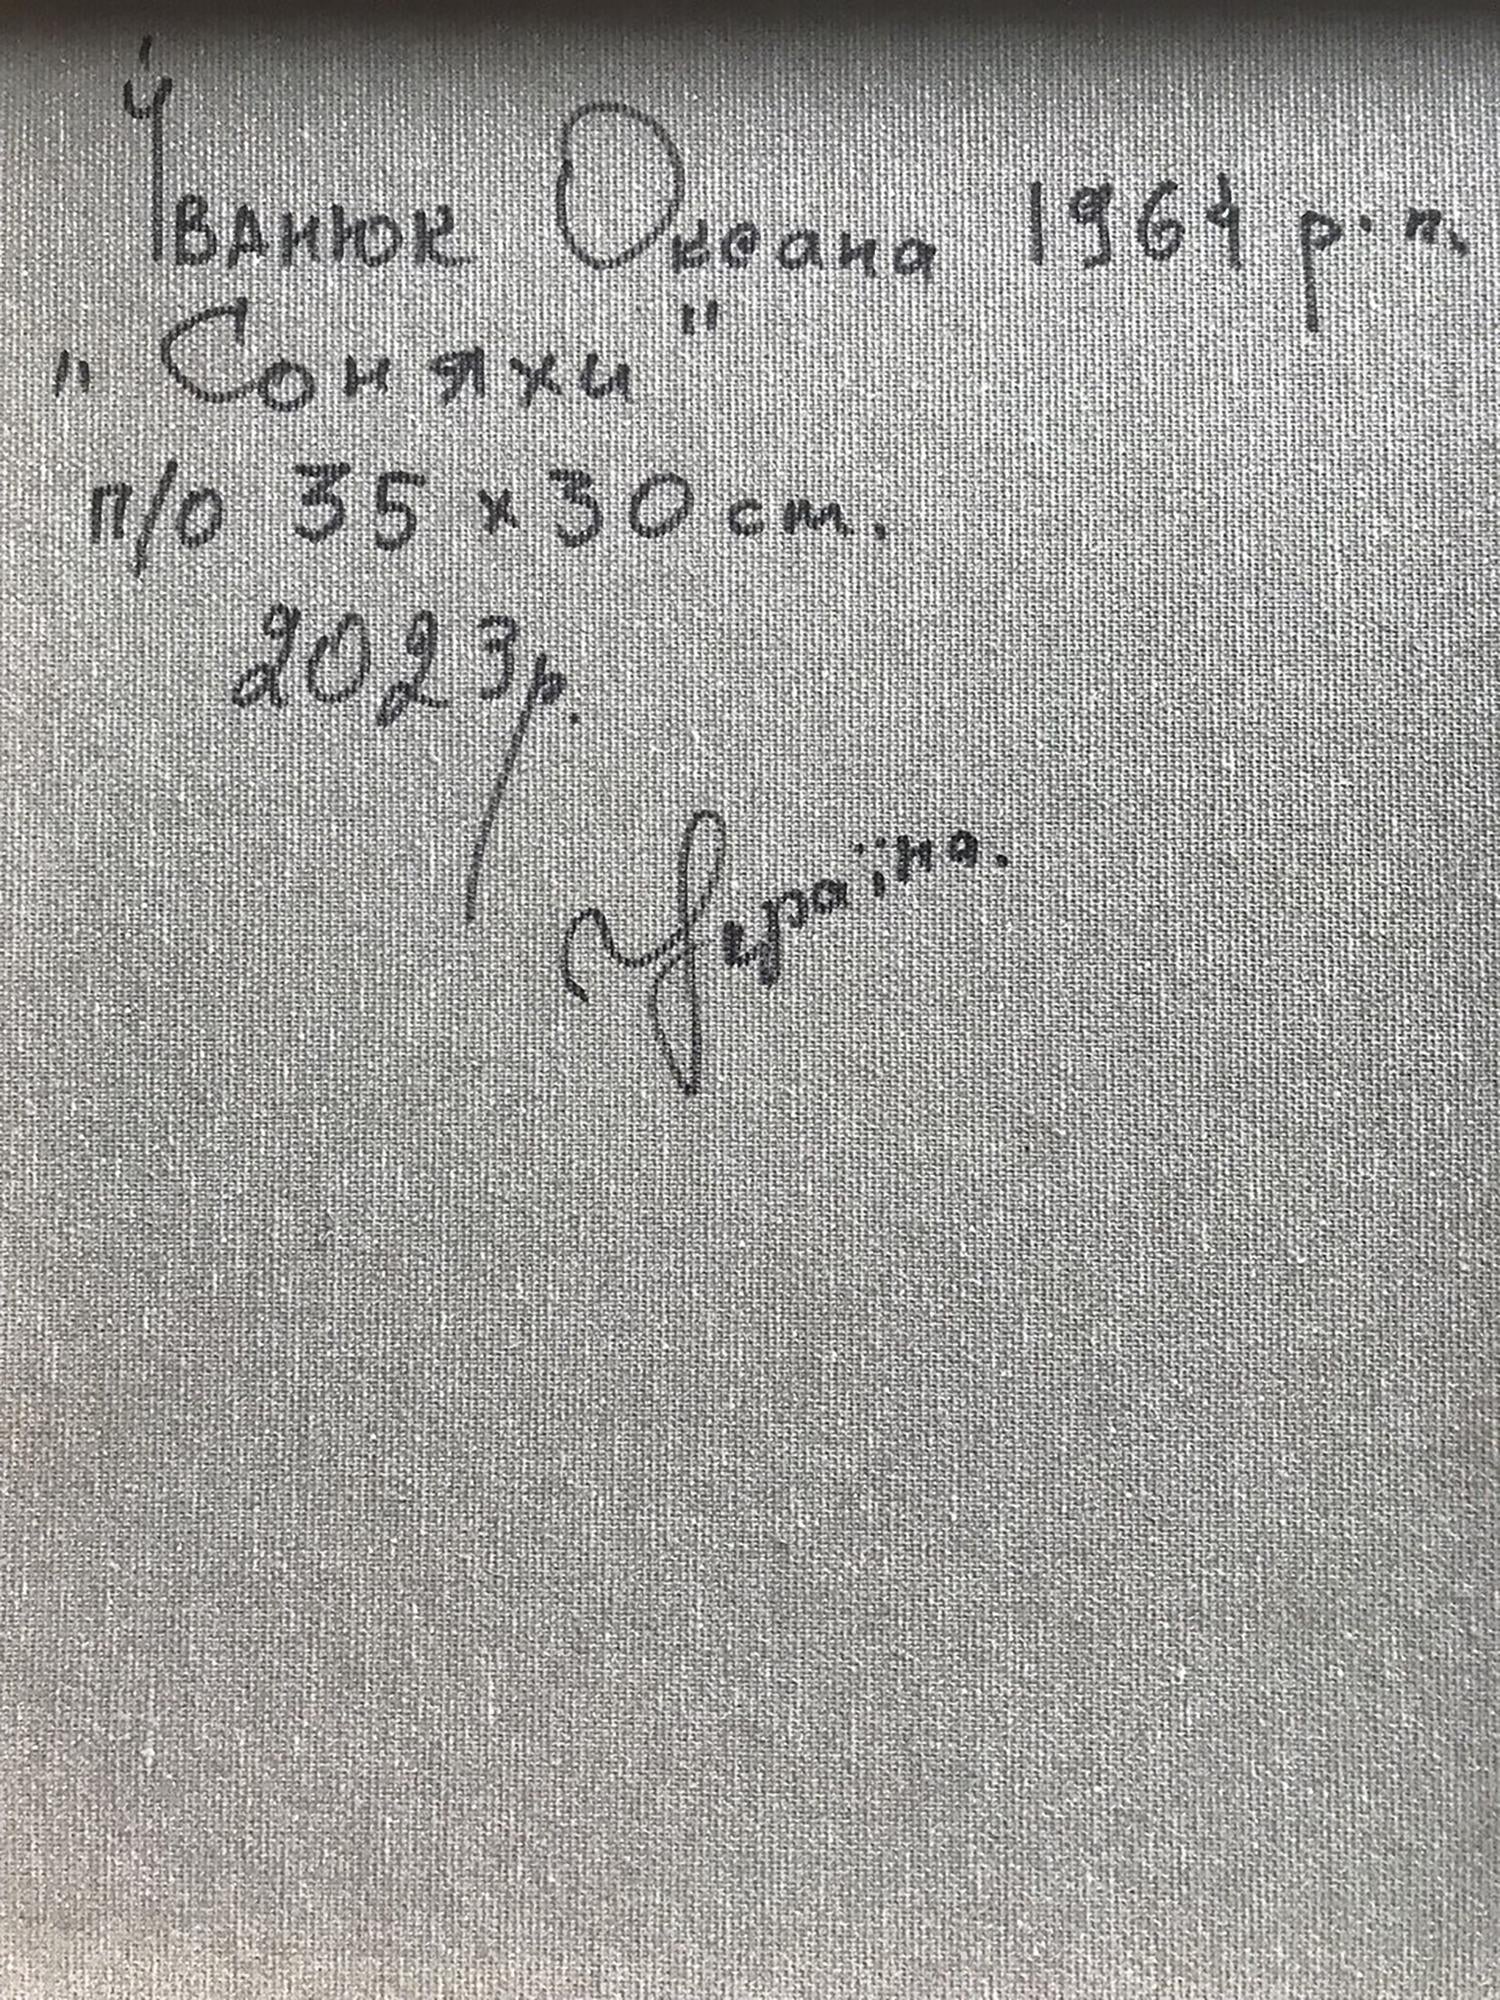 Іванюк Оксана 1964 р.н.
"Соняхи"
п/о 35 х 30 ст.
2023р.
Україна.